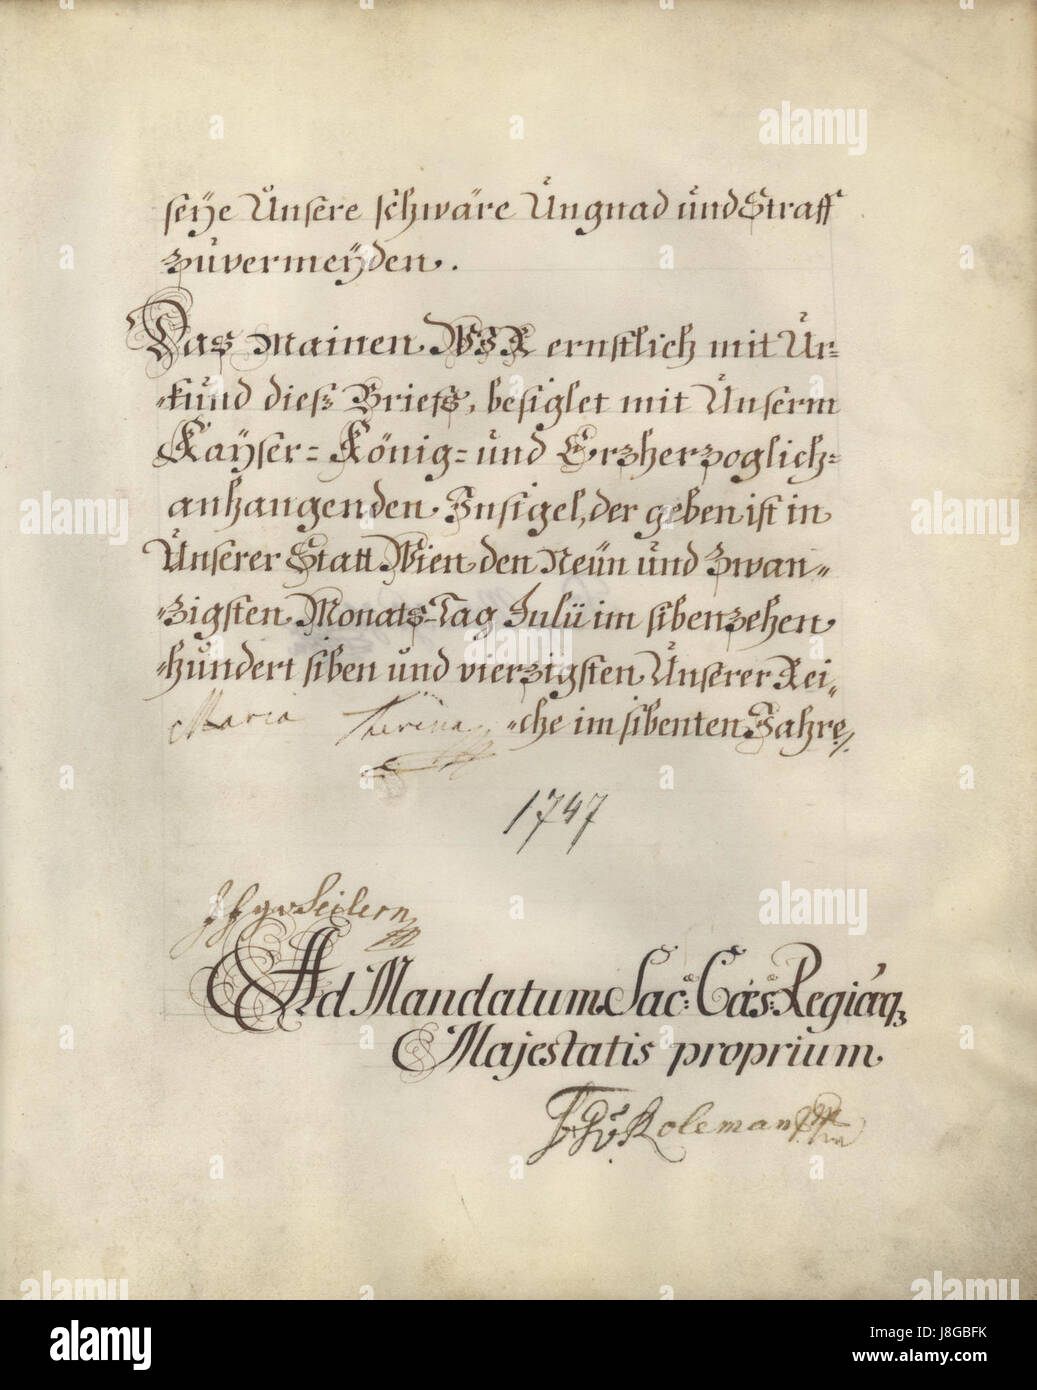 seÿe Unsere schwäre Ungnad und Straff
zuvermeÿden.
Das Mainen WIR ernstlich mit Ur=
kund dieß Briefs, besiglet mit Unserm
Kaÿser= König= und Erzherzoglich=
anhangenden Insigel, der geben ist in
Unserer Statt Wien den Neün und Zwan„
„zigsten Monats-Tag Julii im sibenzehen
„hundert siben und vierzigsten Unserer Rei„
„che im sibenten Jahre.
Maria Theresia
1747
Seilern
Ad Mandatum Sac: Caes: Regiaeq3
Majestatis proprium
Koleman
alamy
Image ID: J8GBFK
www.alamy.com